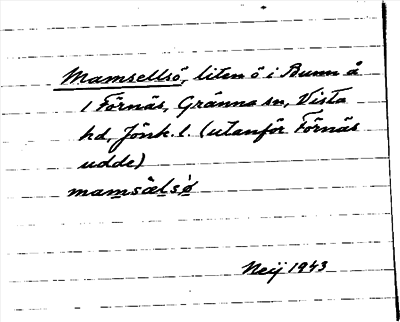 Mamsellsö, liten ö i Bunn å
1 Förnäs, Gränna sn, Vista
hd, Jönk. l. (utanför Förnäs
udde)
mamsälsö
Neij 1943